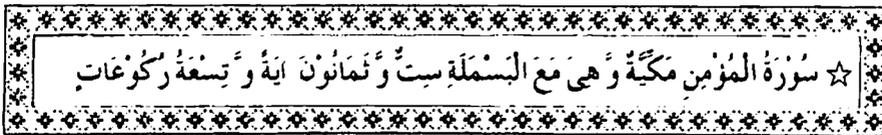 ☆ سُوْرَةُ الْمُؤْمِنِ مَكِّيَّةٌ وَّ هِىَ مَعَ الْبَسْمَلَةِ سِتٌّ وَّ ثَمَانُوْنَ اٰيَةً وَّ تِسْعَةُ رُكُوْعَاتٍ